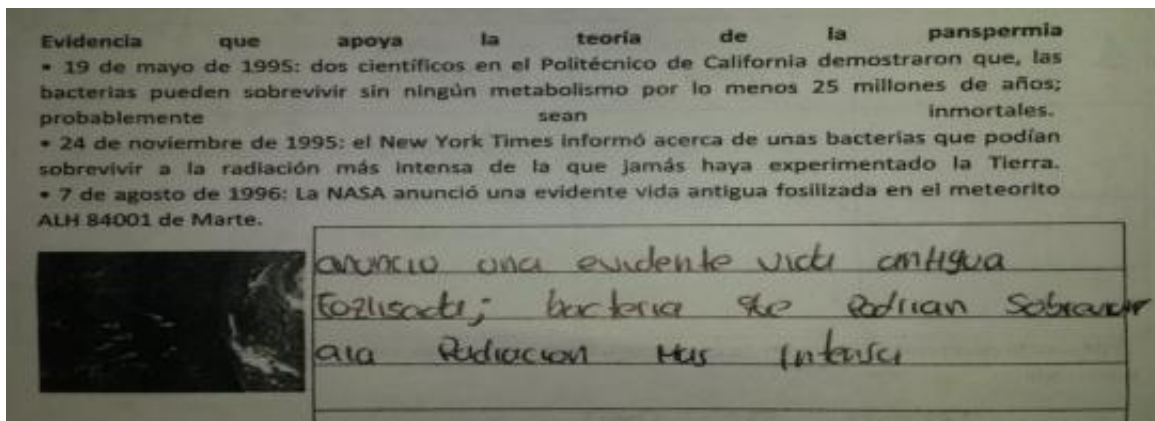 Evidencia que apoya la teoría de la panspermia
• 19 de mayo de 1995: dos científicos en el Politécnico de California demostraron que, las
bacterias pueden sobrevivir sin ningún metabolismo por lo menos 25 millones de años;
probablemente sean inmortales.
• 24 de noviembre de 1995: el New York Times informó acerca de unas bacterias que podían
sobrevivir a la radiación más intensa de la que jamás haya experimentado la Tierra.
• 7 de agosto de 1996: La NASA anunció una evidente vida antigua fosilizada en el meteorito
ALH 84001 de Marte.
anuncio una evidente vida antigua
Fozlisada; bacteria Podrian
ala Radiacion Mas intensa